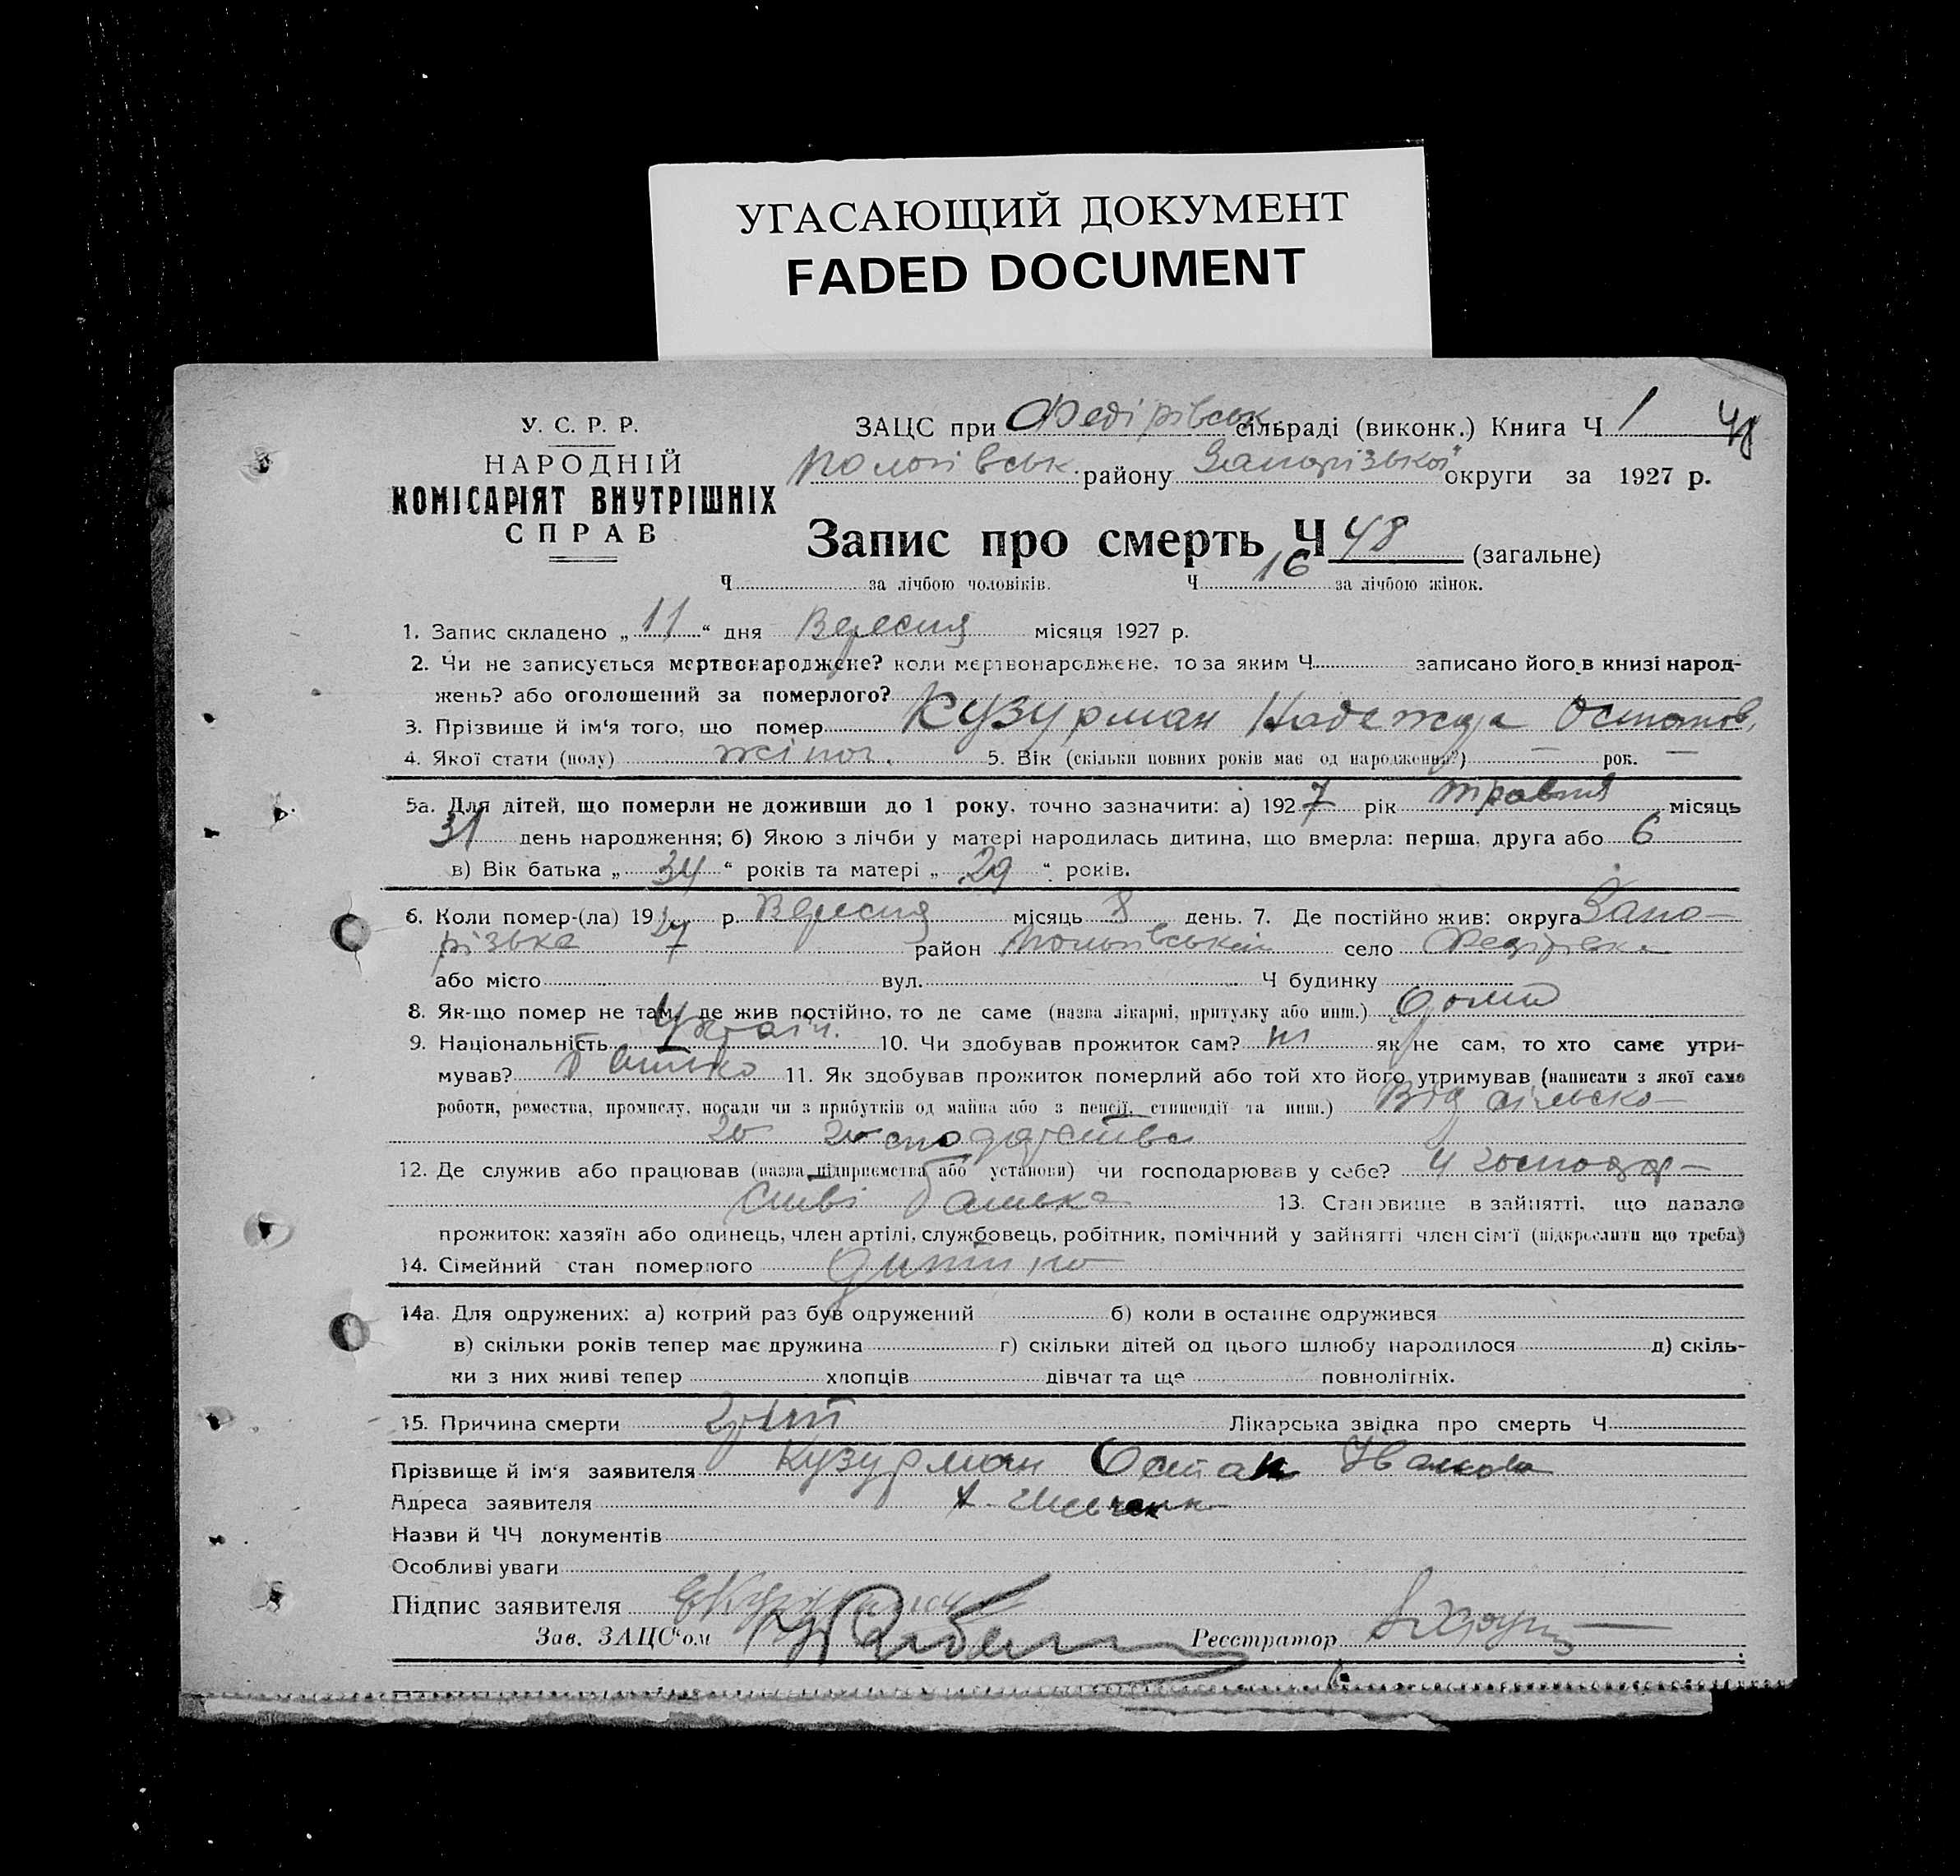 УГАСАЮЩИЙ ДОКУМЕНТ
FADED DOCUMENT
У. С. Р. Р.
НАРОДНІЙ
КОМІСАРІЯТ ВНУТРІШНІХ
СПРАВ
ЗАЦС при Федірівськ. сільраді (виконк.) Книга Ч 1 48
Пологівськ. району Запорізької округи за 1927 р.
Запис про смерть Ч 48 (загальне)
Ч за лічбою чоловіків. Ч 16 за лічбою жінок.
1. Запис складено „ 11 “ дня Вересня місяця 1927 р.
2. Чи не записується мертвонароджене? коли мертвонароджене, то за яким Ч записано його в книзі народ-
жень? або оголошений за померлого?
3. Прізвище й ім‘я того, що помер Кузурман Надежда Остапов.
4. Якої стати (полу) жіноч. 5. Вік (скільки повних років має од народження?) — рок. —
5а. Для дітей, що померли не доживши до 1 року, точно зазначити: а) 192 7 рік травня місяць
31 день народження; б) Якою з лічби у матері народилась дитина, що вмерла: перша, друга або 6
в) Вік батька „ 34 “ років та матері „ 29 “ років.
6. Коли помер-(ла) 19 27 р. Вересня місяць 8 день. 7. Де постійно жив: округа Запо-
різька 7 район Пологівський село Федірівка
або місто вул. Ч будинку
8. Як-що помер не там, де жив постійно, то де саме (назва лікарні, притулку або инш.) дома
9. Національність Україн. 10. Чи здобував прожиток сам? ні як не сам, то хто саме утри-
мував? батько 11. Як здобував прожиток померлий або той хто його утримував (написати з якої само
роботи, ремества, промислу, посади чи з прибутків од майна або з пенсії, стипендії та инш.) Від сільско-
го господарства
12. Де служив або працював (назва підприємства або установи) чи господарював у себе? у господар-
стві батька 13. Становище в зайнятті, що давало
прожиток: хазяїн або одинець, член артілі, службовець, робітник, помічний у зайнятті член сім‘ї (підкреслити що треба)
14. Сімейний стан померлого дитина
14а. Для одружених: а) котрий раз був одружений б) коли в останнє одружився
в) скільки років тепер має дружина г) скільки дітей од цього шлюбу народилося д) скіль-
ки з них живі тепер хлопців дівчат та ще повнолітніх.
15. Причина смерти Лікарська звідка про смерть Ч
Прізвище й ім‘я заявителя Кузурман Остап Іванова
Адреса заявителя
Назви й ЧЧ документів
Особливі уваги
Підпис заявителя
Зав. ЗАЦС‘ом Реєстратор